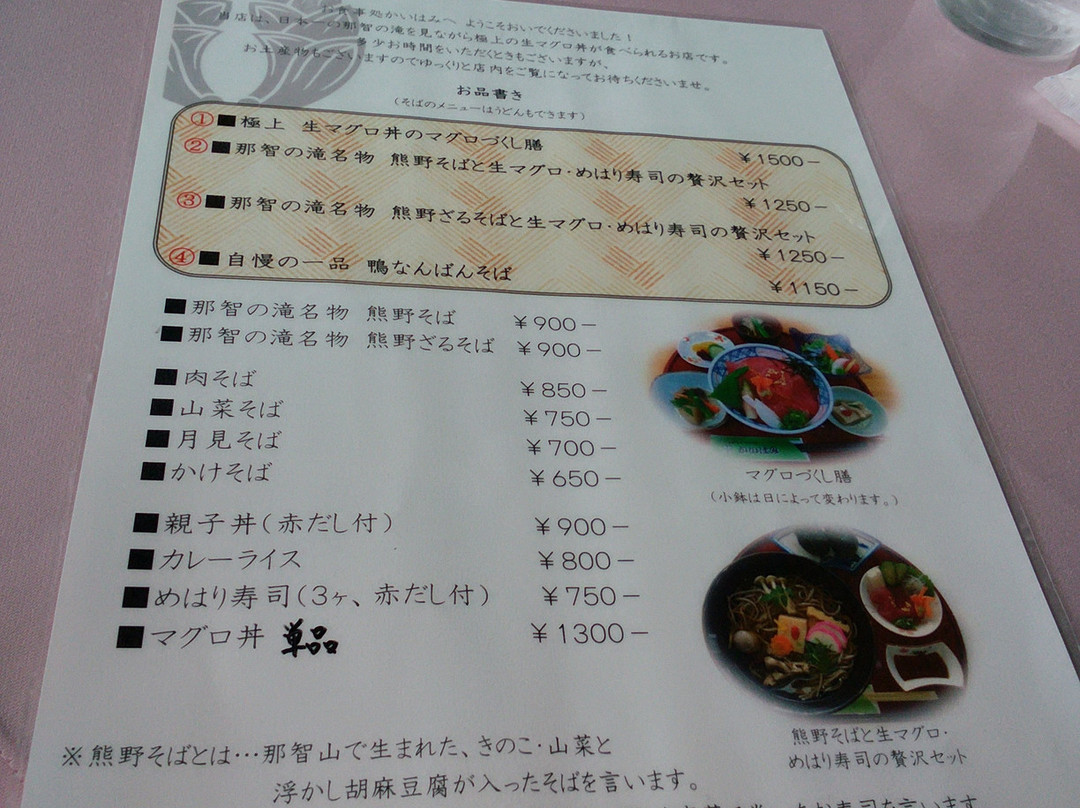 お食事処かいはみへ ようこそおいでくださいました！
当店は、日本一の那智の滝を見ながら極上の生マグロ丼が食べられるお店です。
多少お時間をいただくときもございますが、
お土産物もございますのでゆっくりと店内をご覧になってお待ちくださいませ。
お品書き
（そばのメニューはうどんもできます）
①■極上 生マグロ丼のマグロづくし膳 ￥1500－
②■那智の滝名物 熊野そばと生マグロ・めはり寿司の贅沢セット
￥1250－
③■那智の滝名物 熊野ざるそばと生マグロ・めはり寿司の贅沢セット
￥1250－
④■自慢の一品 鴨なんばんそば ￥1150－
■那智の滝名物 熊野そば ￥900－
■那智の滝名物 熊野ざるそば ￥900－
■肉そば ￥850－
■山菜そば ￥750－
■月見そば ￥700－
■かけそば ￥650－
マグロづくし膳
（小鉢は日によって変わります。）
■親子丼（赤だし付） ￥900－
■カレーライス ￥800－
■めはり寿司（3ヶ、赤だし付） ￥750－
■マグロ丼 単品 ￥1300－
熊野そばと生マグロ・
めはり寿司の贅沢セット
※熊野そばとは…那智山で生まれた、きのこ・山菜と
浮かし胡麻豆腐が入ったそばを言います。
寿司を言います